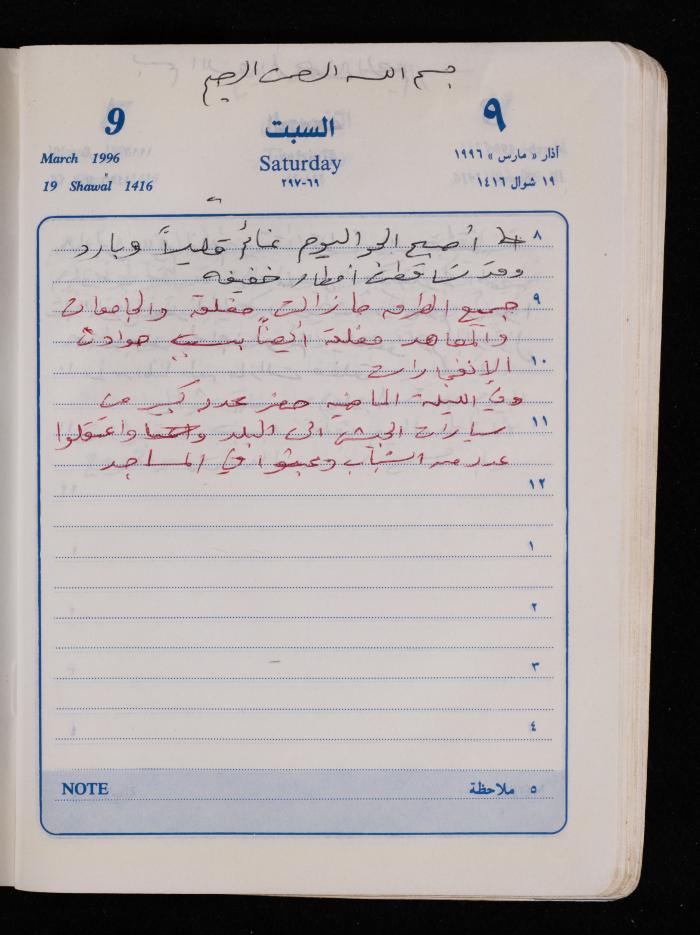 بسم الله الرحمن الرحيم
9 السبت ٩
March 1996 Saturday آذار « مارس » ١٩٩٦
19 Shawal 1416 ٦٩-٢٩٧ ١٩ شوال ١٤١٦
٨ أصبح الجو اليوم غائم قليلاً وبارد
وقد تساقطت أمطار خفيفه
٩ جميع الطرق ما زالت مغلقة والجامعات
والمعاهد مغلقة أيضاً بسبب حوادث
١٠ الانفجارات
وفي الليلة الماضيه حضر عدد كبير من
١١ سيارات الجيش الى البلد واعتقلوا
عدد من الشباب وعبثوا في المساجد
١٢
١
٢
٣
٤
NOTE ٥ ملاحظة